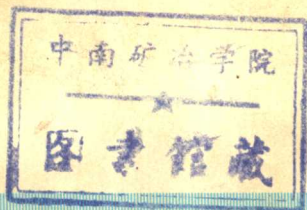 中南矿冶学院
图书馆藏